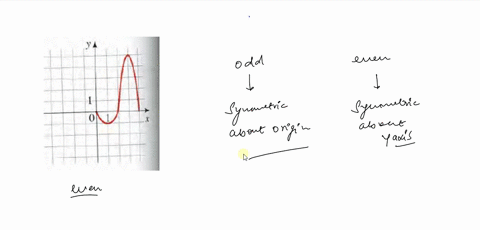 y
1
0
1
x
even
odd
even
Symmetric
about origin
Symmetric
about
y axis